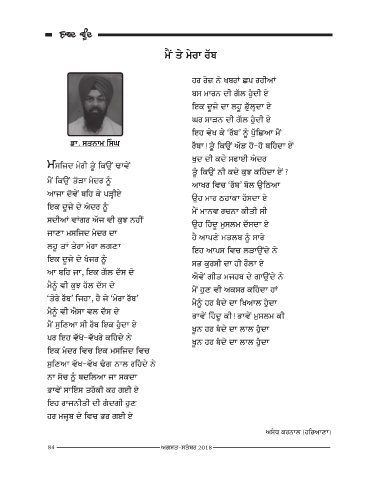 ਸ਼ਬਦ ਬੂੰਦ
ਮੈਂ ਤੇ ਮੇਰਾ ਰੱਬ
ਡਾ. ਸਤਨਾਮ ਸਿੰਘ
ਮਸਜਿਦ ਮੇਰੀ ਤੂੰ ਕਿਉਂ ਢਾਵੇਂ
ਮੈਂ ਕਿਉਂ ਤੋੜਾ ਮੰਦਰ ਨੂੰ
ਆਜਾ ਦੋਵੇਂ ਬਹਿ ਕੇ ਪੜ੍ਹੀਏ
ਇਕ ਦੂਜੇ ਦੇ ਅੰਦਰ ਨੂੰ
ਸਦੀਆਂ ਵਾਂਗਰ ਅੱਜ ਵੀ ਕੁਝ ਨਹੀਂ
ਜਾਣਾ ਮਸਜਿਦ ਮੰਦਰ ਦਾ
ਲਹੂ ਤਾਂ ਤੇਰਾ ਮੇਰਾ ਲਗਣਾ
ਇਕ ਦੂਜੇ ਦੇ ਖੰਜਰ ਨੂੰ
ਆ ਬਹਿ ਜਾ, ਇਕ ਗੱਲ ਦੱਸ ਦੇ
ਮੈਨੂੰ ਵੀ ਕੁਝ ਹੱਲ ਦੱਸ ਦੇ
'ਤੇਰੇ ਰੱਬ' ਜਿਹਾ, ਹੈ ਜੇ 'ਮੇਰਾ ਰੱਬ'
ਮੈਨੂੰ ਵੀ ਐਸਾ ਵਲ ਦੱਸ ਦੇ
ਮੈਂ ਸੁਣਿਆ ਸੀ ਰੱਬ ਇਕ ਹੁੰਦਾ ਏ
ਪਰ ਇਹ ਵੱਖੋ-ਵੱਖਰੇ ਕਹਿੰਦੇ ਨੇ
ਇਕ ਮੰਦਰ ਵਿਚ ਇਕ ਮਸਜਿਦ ਵਿਚ
ਸੁਣਿਆ ਵੱਖ-ਵੱਖ ਢੰਗ ਨਾਲ ਰਹਿੰਦੇ ਨੇ
ਨਾ ਸੋਚ ਨੂੰ ਬਦਲਿਆ ਜਾ ਸਕਦਾ
ਭਾਵੇਂ ਸਾਇੰਸ ਤਰੱਕੀ ਕਰ ਗਈ ਏ
ਇਹ ਰਾਜਨੀਤੀ ਦੀ ਗੰਦਗੀ ਹੁਣ
ਹਰ ਮਜ਼੍ਹਬ ਦੇ ਵਿਚ ਭਰ ਗਈ ਏ
ਹਰ ਰੋਜ਼ ਨੇ ਖ਼ਬਰਾਂ ਛਪ ਰਹੀਆਂ
ਬਸ ਮਾਰਨ ਦੀ ਗੱਲ ਹੁੰਦੀ ਏ
ਇਕ ਦੂਜੇ ਦਾ ਲਹੂ ਡੁੱਲ੍ਹਦਾ ਏ
ਘਰ ਸਾੜਨ ਦੀ ਗੱਲ ਹੁੰਦੀ ਏ
ਇਹ ਵੇਖ ਕੇ 'ਰੱਬ' ਨੂੰ ਪੁੱਛਿਆ ਮੈਂ
ਰੱਬਾ! ਤੂੰ ਕਿਉਂ ਅੱਡ ਹੋ-ਹੋ ਬਹਿੰਦਾ ਏਂ
ਖੁਦ ਦੀ ਕਦੇ ਸਫਾਈ ਅੰਦਰ
ਤੂੰ ਕਿਉਂ ਨੀ ਕਦੇ ਕੁਝ ਕਹਿੰਦਾ ਏਂ?
ਆਖਰ ਵਿਚ 'ਰੱਬ' ਬੋਲ ਉਠਿਆ
ਉਹ ਮਾਰ ਠਹਾਕਾ ਹੱਸਦਾ ਏ
ਮੈਂ ਮਾਨਵ ਰਚਨਾ ਕੀਤੀ ਸੀ
ਉਹ ਹਿੰਦੂ ਮੁਸਲਮ ਦੱਸਦਾ ਏ
ਹੈ ਆਪਣੇ ਮਤਲਬ ਨੂੰ ਸਾਰੇ
ਇਹ ਆਪਸ ਵਿਚ ਲੜਾਉਂਦੇ ਨੇ
ਸਭ ਕੁਰਸੀ ਦਾ ਹੀ ਰੌਲਾ ਏ
ਐਵੇਂ ਗੀਤ ਮਜਹਬ ਦੇ ਗਾਉਂਦੇ ਨੇ
ਮੈਂ ਹੁਣ ਵੀ ਅਕਸਰ ਕਹਿੰਦਾ ਹਾਂ
ਮੈਨੂੰ ਹਰ ਬੰਦੇ ਦਾ ਖਿਆਲ ਹੁੰਦਾ
ਭਾਵੇਂ ਹਿੰਦੂ ਕੀ! ਭਾਵੇਂ ਮੁਸਲਮ ਕੀ
ਖੂਨ ਹਰ ਬੰਦੇ ਦਾ ਲਾਲ ਹੁੰਦਾ
ਖੂਨ ਹਰ ਬੰਦੇ ਦਾ ਲਾਲ ਹੁੰਦਾ
ਅਸੰਧ ਕਰਨਾਲ (ਹਰਿਆਣਾ)
84
ਅਗਸਤ-ਸਤੰਬਰ 2018